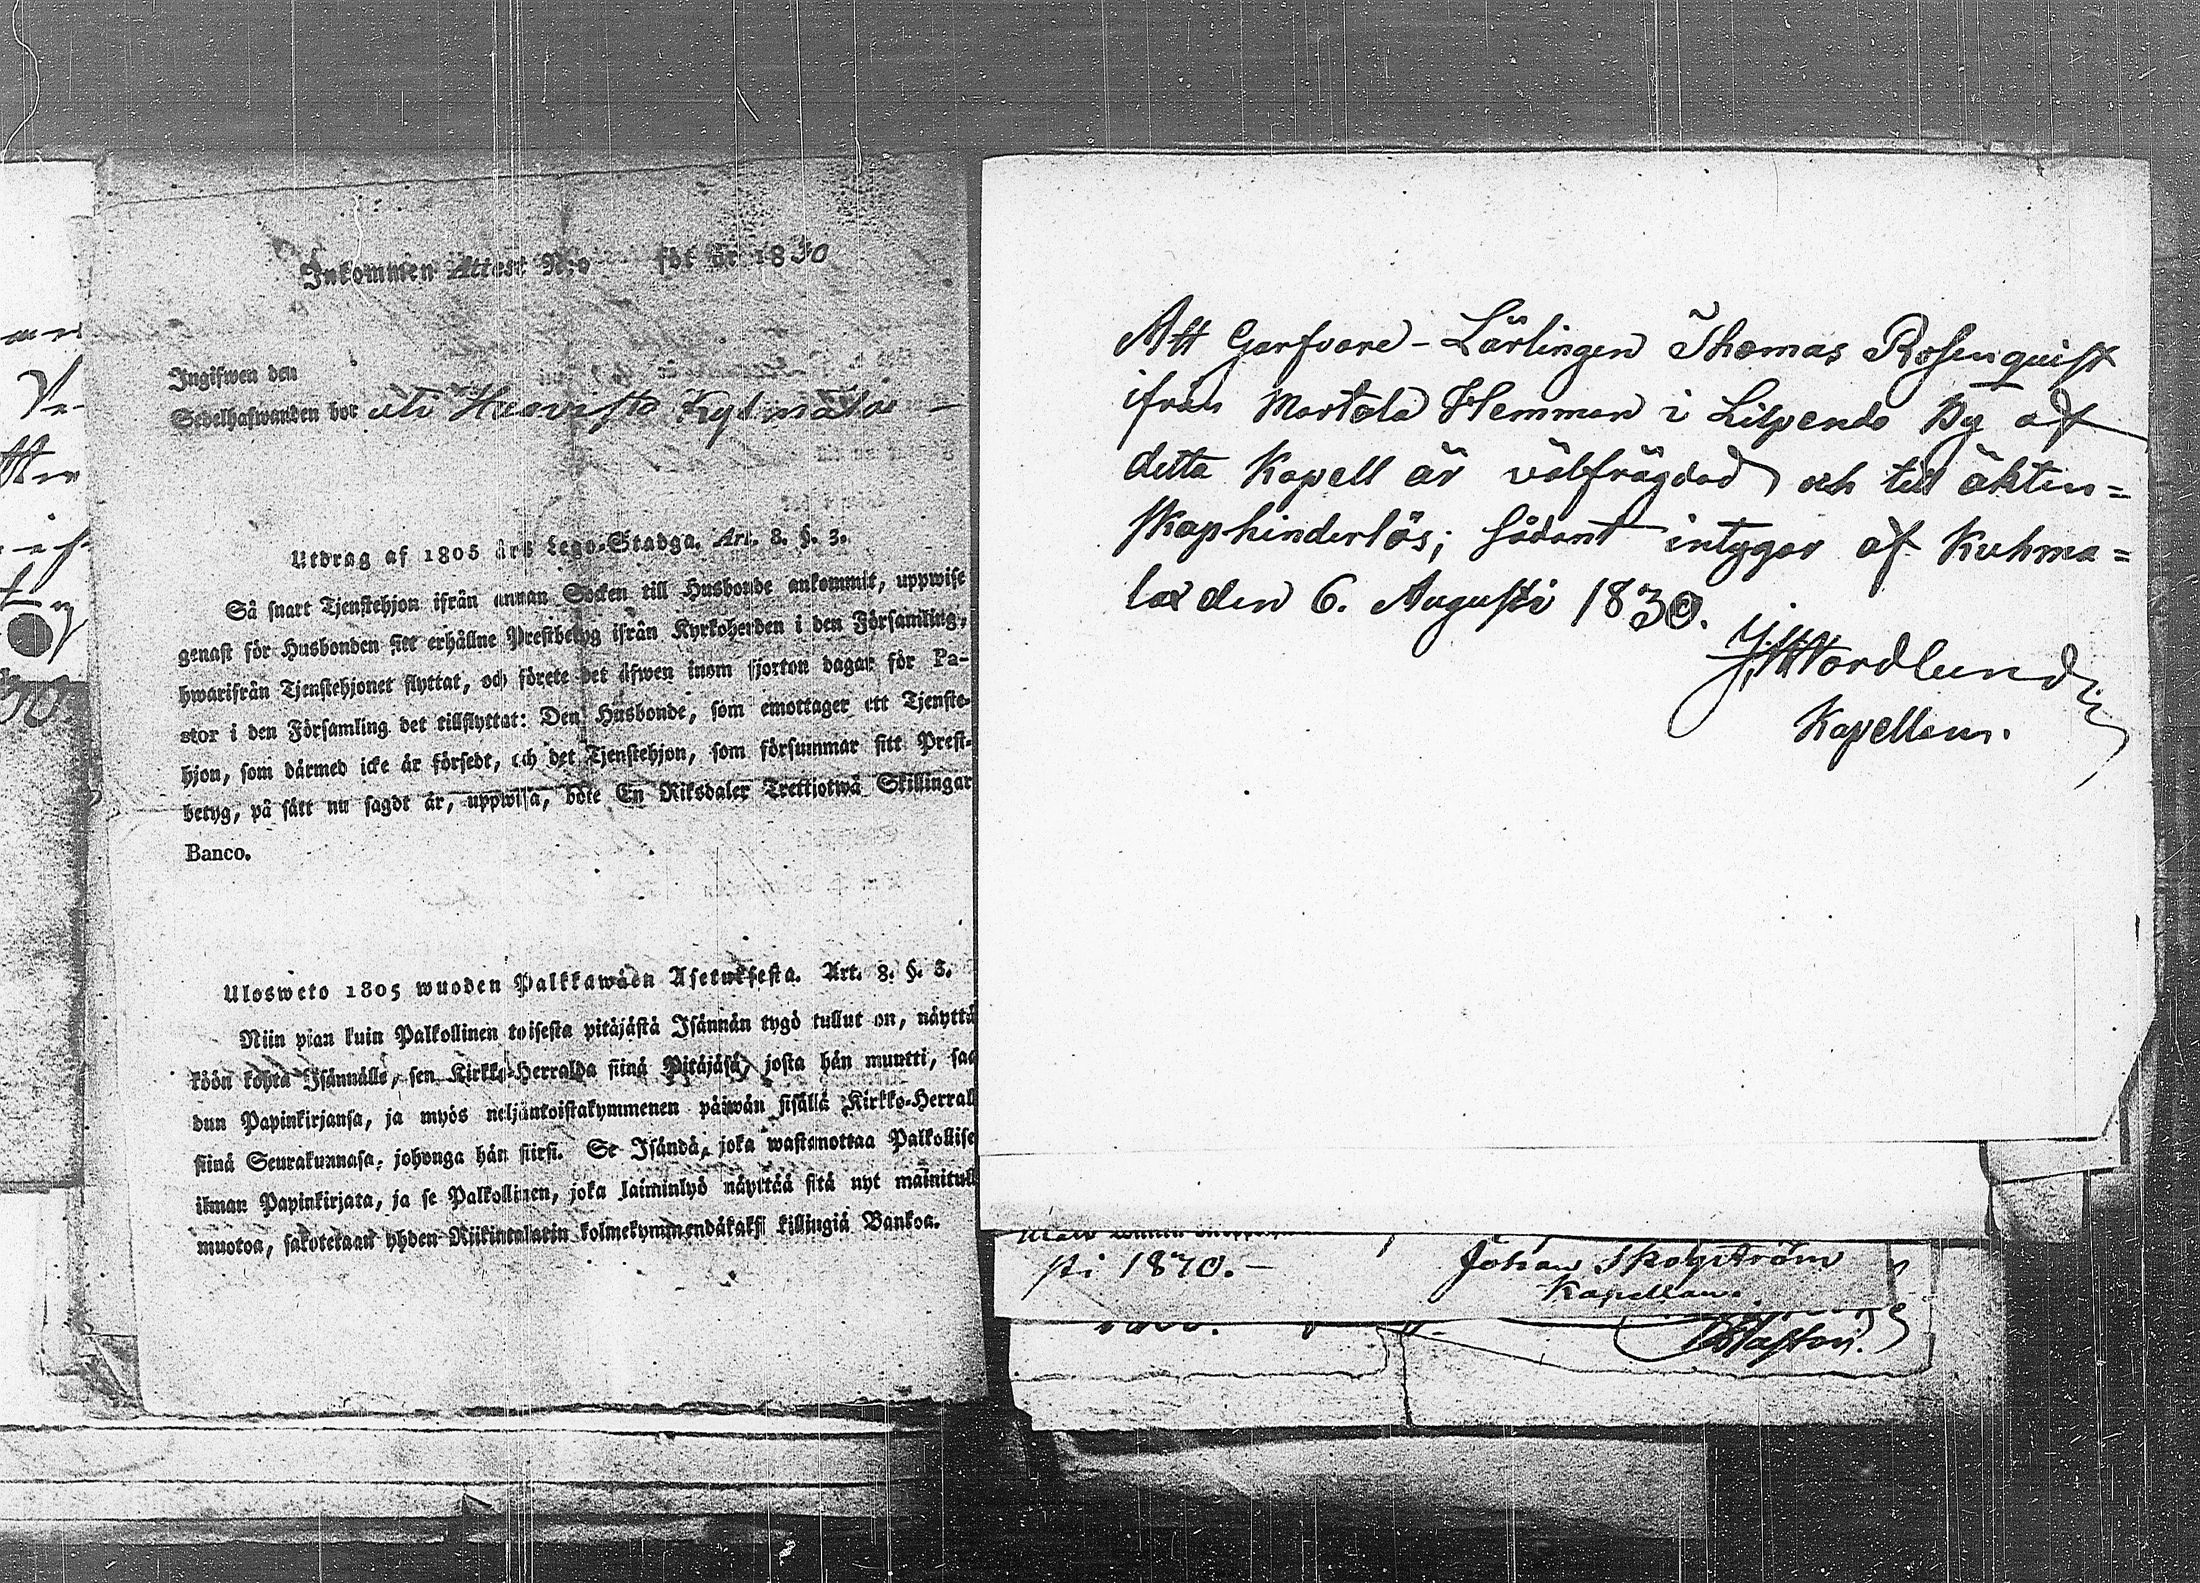 Inkommen Attest N:o för år 1830
Ingifwen den
Sedelhafwanden bor uti Huovista Kylmälä
Utdrag af 1805 års Lego-Stadga. Art. 8. §. 3.
Så snart Tjenstehjon ifrån annan Socken till Husbonde ankommit, uppwise
genast för Husbonden sitt erhållne Prestbetyg ifrån Kyrkoherden i den Församling,
hwarifrån Tjenstehjonet flyttat, och förete det äfwen inom fjorton dagar för Pa-
stor i den Församling det tillflyttat: Den Husbonde, som emottager ett Tjenste-
hjon, som dårmed icke är försedt, och det Tjenstehjon, som försummar sitt Prest-
betyg, på sätt nu sagdt är, uppwisa, böte En Riksdaler Trettiotwå Skillingar
Banco.
Ulosweto 1805 wuoden Palkkawäen Asetuksesta. Art. 8. §. 3.
Niin pian kuin Palkollinen toisesta pitäjästä Isännän tygö tullut on, näyttä
köön kohta Isännälle, sen Kirkko-Herralda siinä Pitäjäsä, josta hän muutti, saa
dun Papinkirjansa, ja myös neljäntoistakymmenen päiwän sisällä Kirkko-Herral
siinä Seurakunnasa, johonga hän siirsi. Se Isändä, joka wastanottaa Palkollise
ilman Papinkirjata, ja se Palkollinen, joka laiminlyö näyttää sitä nyt mainitull
muotoa, sakotetaan yhden Riikintalarin kolmekymmendäkaksi killingiä Bankoa.
Att Garfvare-Lärlingen Thomas Rosenquist
ifrån Martola Hemman i Lilpendo By af
detta Kapell är välfrägdad och till äkten=
skap hinderlös; sådant intygar af Kuhma=
lax den 6. Augusti 1830.
J. Nordlund
Kapellan.
sti 1870.-
Johan Skogström
Kapellan.